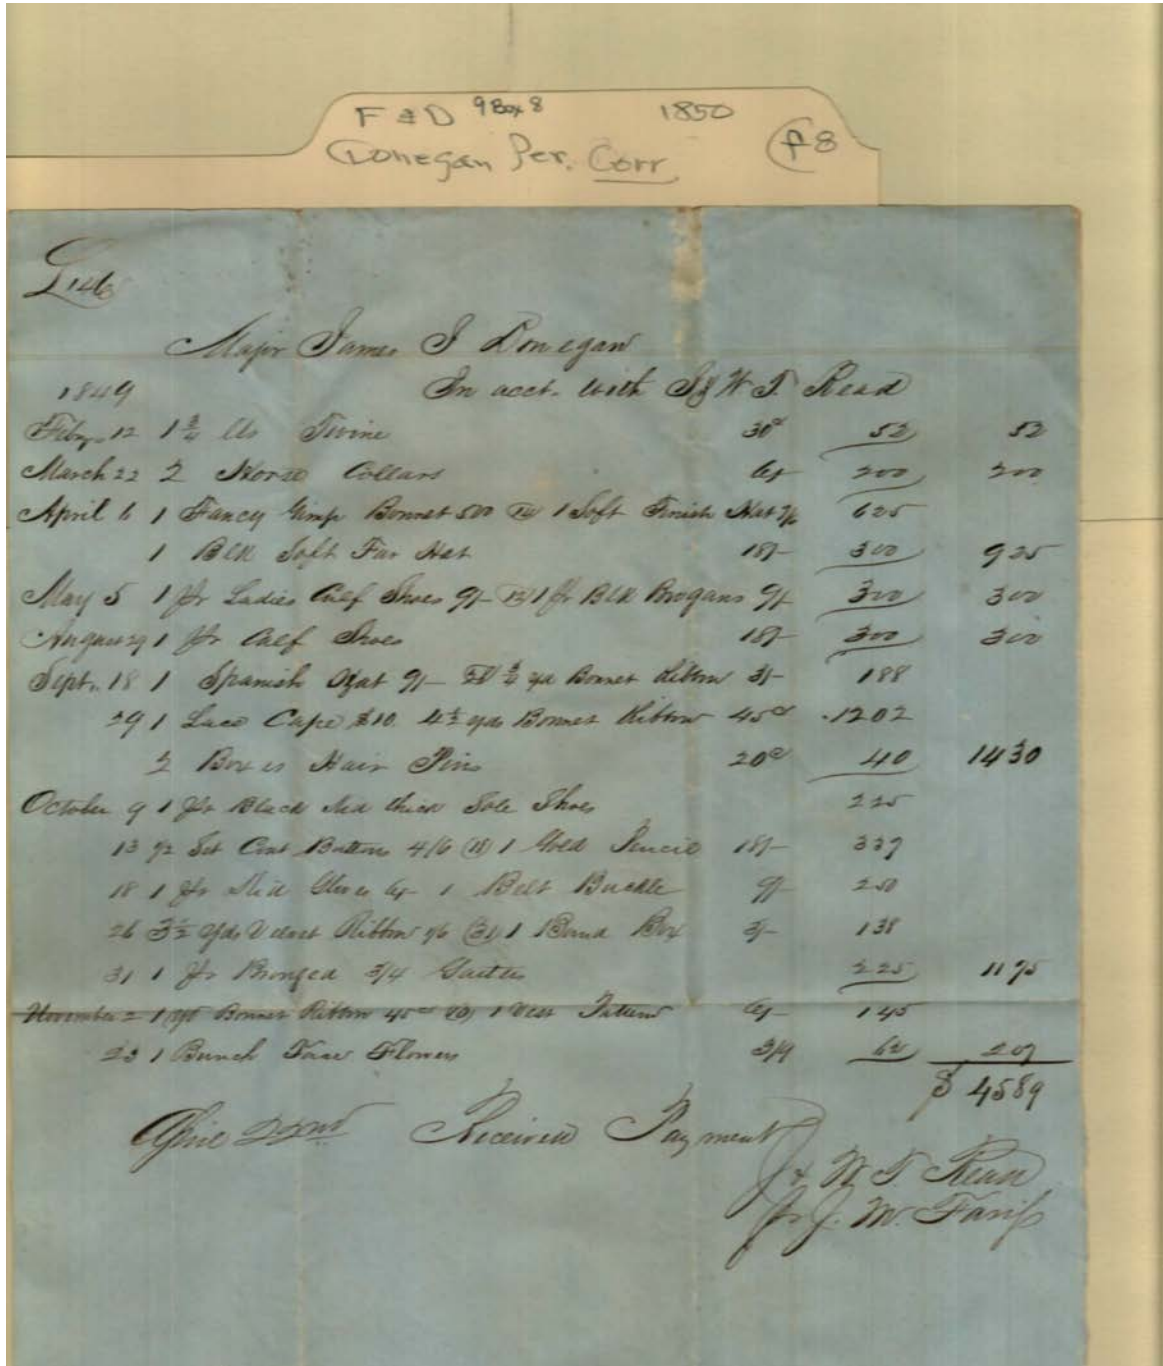 F & D 9 Box 8 1850
Donegan Per. Corr f8
Major James J Donegan
1849 In acct. with J & W. T. Read
Feby 12 1 3/4 lbs Twine 30c 52 52
March 22 2 Horse Collars 6/- 200 200
April 6 1 Fancy Gimp Bonnet 500 1 Soft Finish Hat 625
1 Blk Soft Fur Hat 18/- 300 925
May 5 1 Pr Ladies Calf Shoes 9/- 1 Pr Blk Brogans 9/- 300 300
August 29 1 Pr Calf Shoes 18/- 300 300
Sept. 18 1 Spanish Hat 9/- 3/4 yd Bonnet Ribbon 3/- 188
29 1 Lace Cape $10. 4 1/2 yds Bonnet Ribbon 45c 1202
2 Boxes Hair Pins 20c 40 1430
October 9 1 Pr Black Kid thick Sole Shoes 225
13 1/2 Set Coat Buttons 4/6 (18) 1 Gold Pencil 18/- 337
18 1 Pr Kid Gloves 6/- 1 Belt Buckle 9/- 250
26 3 1/2 yds Velvet Ribbon (31) 1 Band Box 3/- 138
31 1 Pr Bronzed 3/4 Gaiters 225 1175
November 2 1 yd Bonnet Ribbon 45c 1 Vest Pattern 6/- 145
23 1 Bunch Face Flowers 3/9 62 207
$ 4589
April 22nd Received Payment
J & W. T. Read
Pr J. M. Fariss